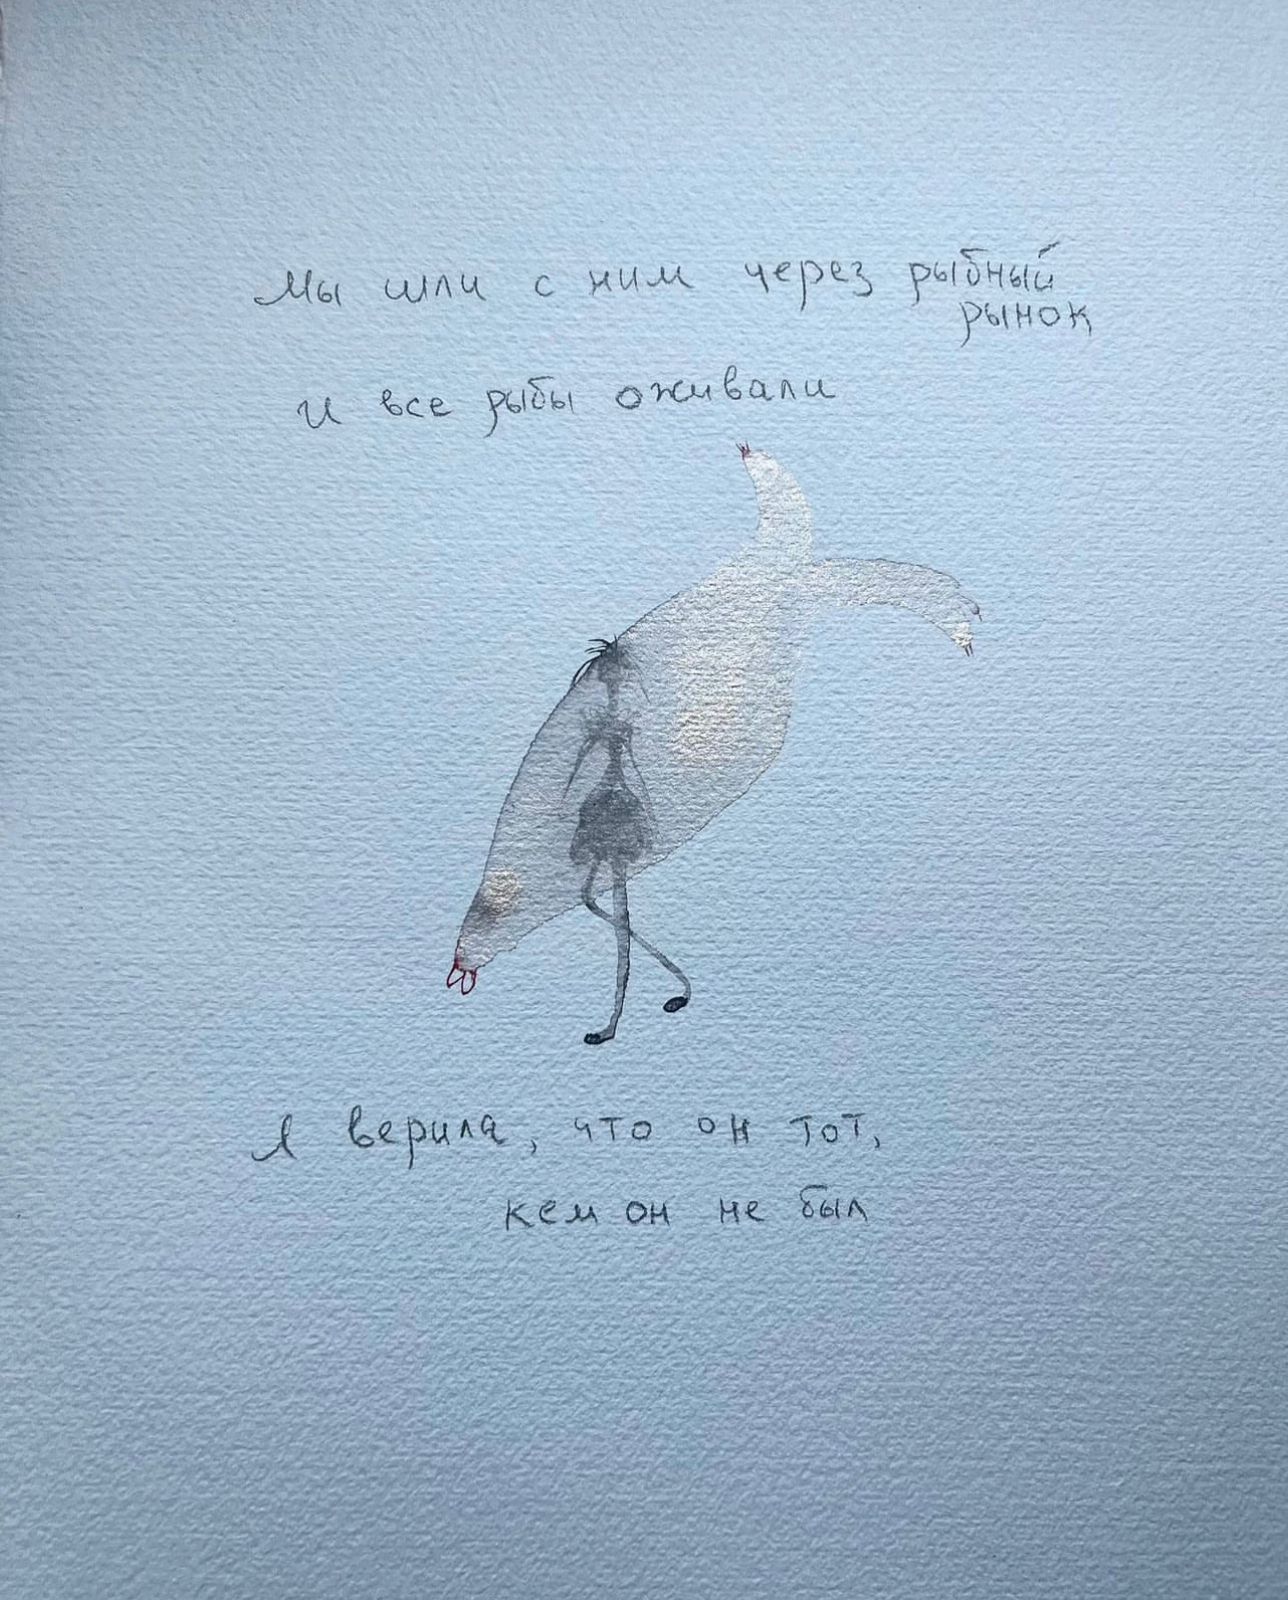 Мы шли с ним через рыбный
рынок
и все рыбы оживали
Я верила, что он тот,
кем он не был